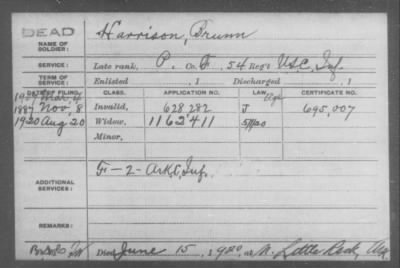 DEAD
NAME OF SOLDIER: Harrison, Brunn
SERVICE: Late rank, P. Co. F, 54 Reg't U.S.C. Inf.
TERM OF SERVICE: Enlisted , 1 Discharged , 1
DATE OF FILING. CLASS. APPLICATION NO. LAW. CERTIFICATE NO.
Mar 4
1887 Nov, 8 Invalid, 628282 J 695,007
1920 Aug 20 Widow, 1162411
Minor,
ADDITIONAL SERVICES: F-2-Ark. C. Inf.
REMARKS:
Died June 15, 1920, at N. Little Rock, Ark